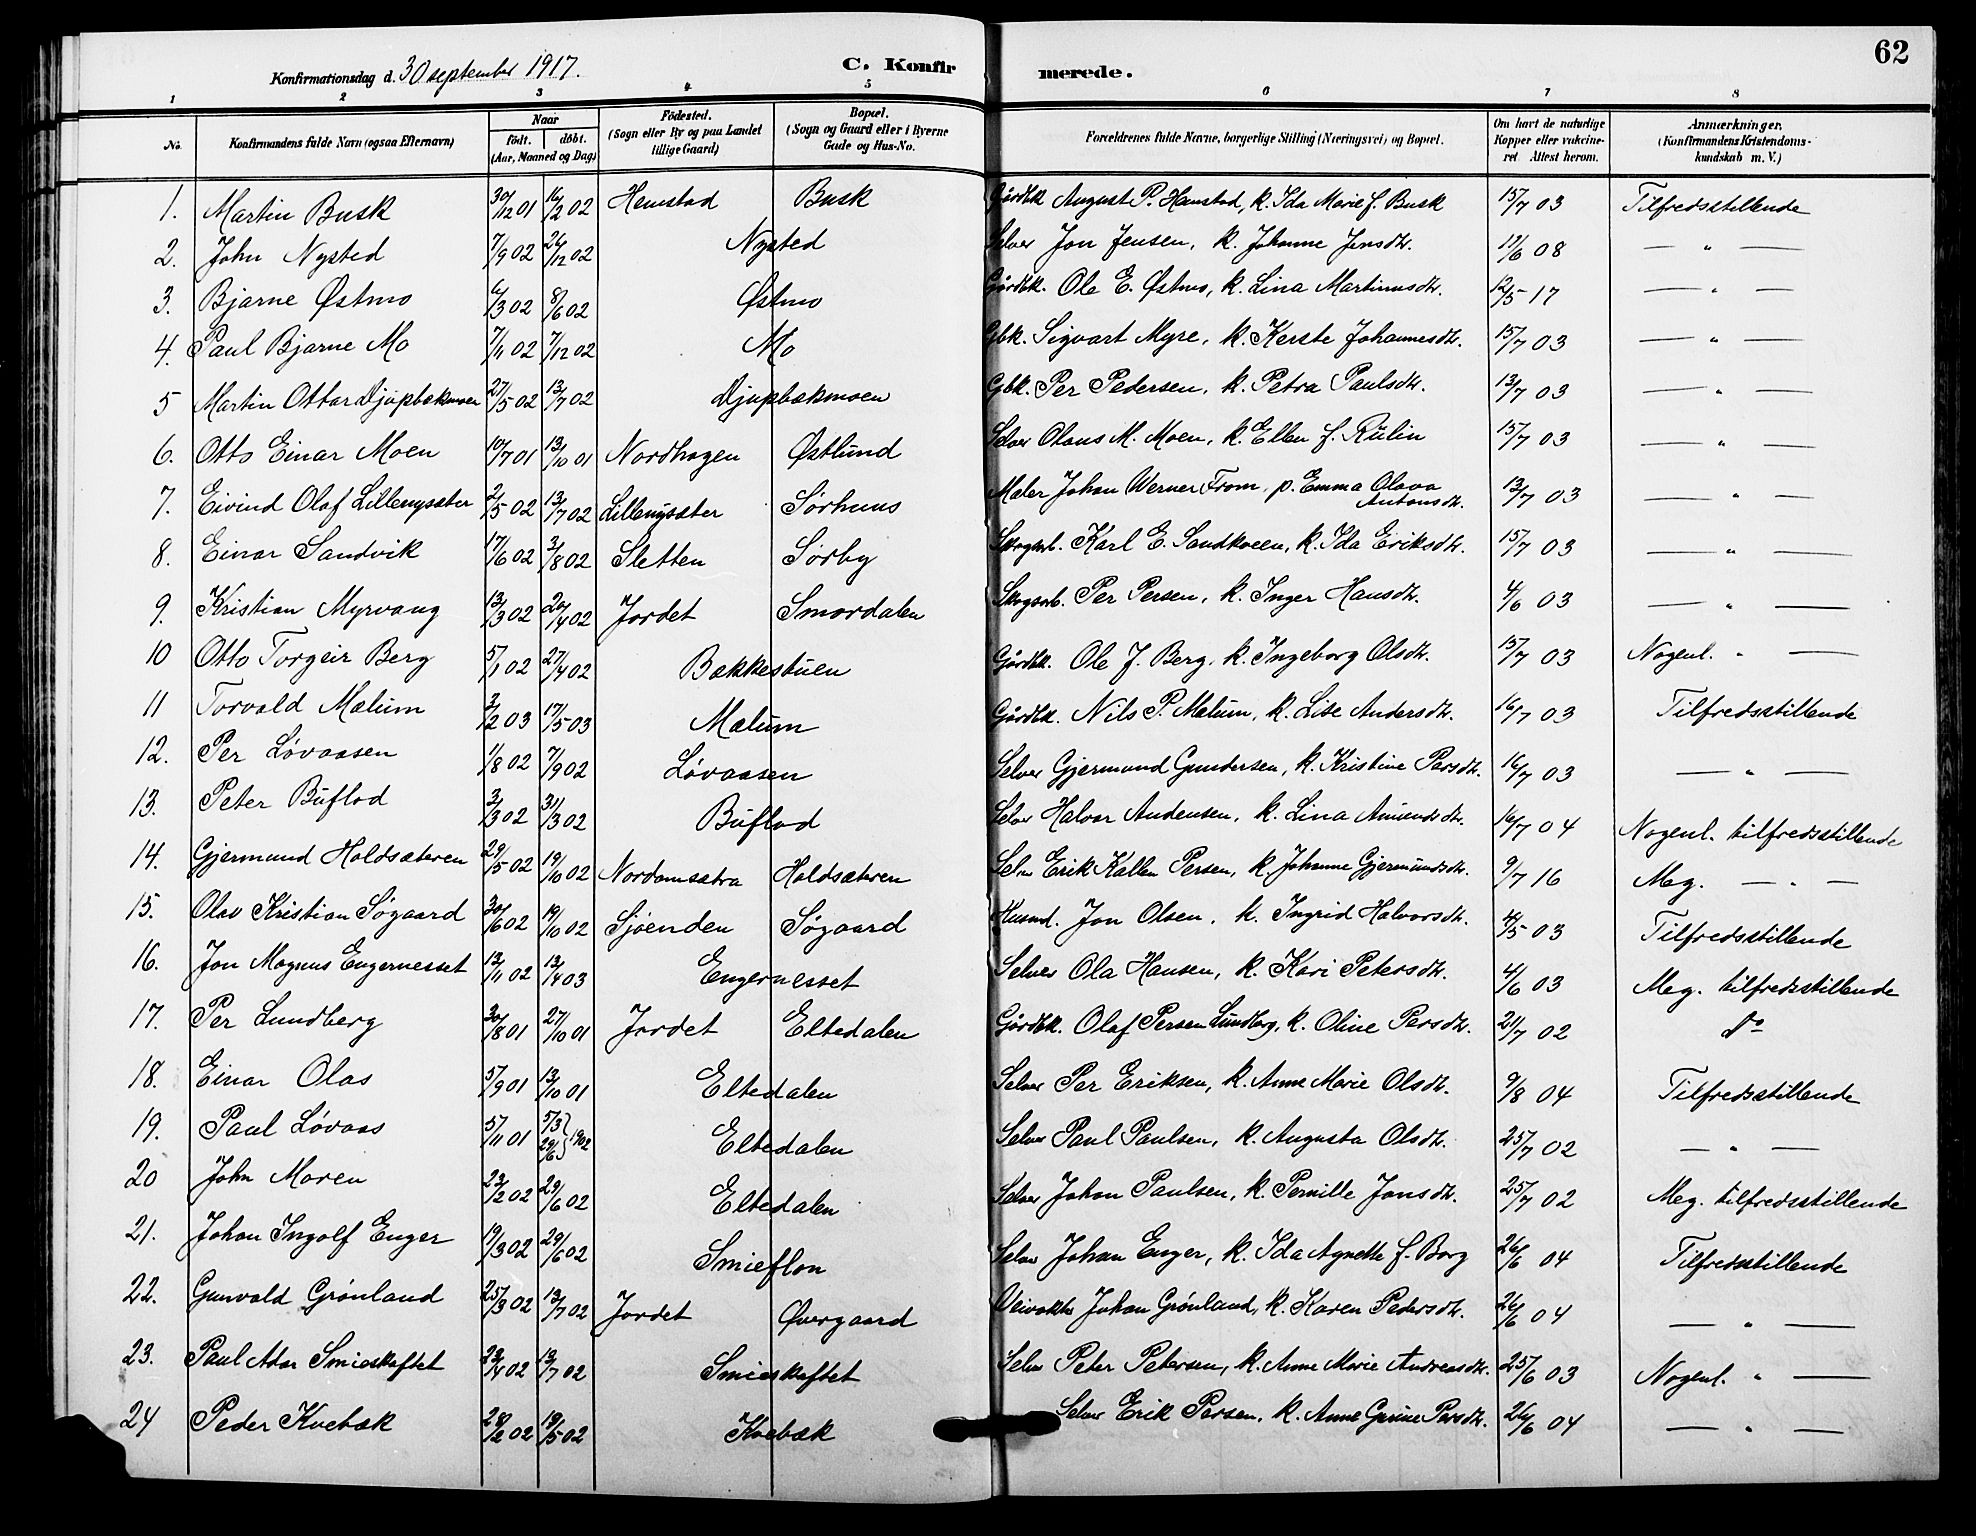 62
Konfirmationsdag d. 30 september 1917.
C. Konfirmerede.
1 2 3 4 5 6 7 8
No. Konfirmandens fulde Navn (ogsaa Efternavn) Naar født. døbt. (Aar, Maaned og Dag) Födested. (Sogn eller By og paa Landet tillige Gaard) Bopæl. (Sogn og Gaard eller i Byerne Gade og Hus-No. Forældrenes fulde Navne, borgerlige Stilling (Næringsvei) og Bopæl. Om havt de naturlige Kopper eller vakcineret Attest herom. Anmærkninger, (Konfirmandens Kristendomskundskab m. V.)
1. Martin Busk 30/12 01 16/2 02 Hemstad Busk Gårdbk. August P. Hemstad, k. Ida Marie f. Busk 15/7 03 Tilfredsstillende
2. John Nysted 7/9 02 26/12 02 Nysted Selver Jon Jensen, k. Johanne Jensdtr. 19/6 08 — " —
3. Bjarne Østmo 6/3 02 8/6 02 Østmo Gårdbk. Ole E. Østmo, k. Lina Martinusdtr. 12/5 17 — " —
4. Paul Bjarne Mo 7/11 02 7/12 02 Mo Gbk. Sigvart Myre, k. Kerste Johannesdtr. 15/7 03 — " —
5 Martin Ottar Djupbækmoen 27/5 02 13/7 02 Djupbækmoen Gbk. Per Pedersen, k. Petra Paulsdtr. 13/7 03 — " —
6. Otto Einar Moen 10/7 01 13/10 01 Nordhagen Østlund Selver Olaus M. Moen, k. Ellen f. Rülin 15/7 03 — " —
7. Eivind Olaf Lillenysæter 2/5 02 13/7 02 Lillenysæter Sørhuus Maler Johan Werner From, p. Emma Olava Antonsdtr. 13/7 03 — " —
8. Einar Sandvik 17/6 02 3/8 02 Sletten Sørby Skogsarb. Karl E. Sandkveen, k. Ida Eriksdtr. 15/7 03 — " —
9. Kristian Myrvang 13/3 02 20/4 02 Jordet Smordalen Skogsarb. Per Persen, k. Inger Hansdtr. 4/6 03 — " —
10 Otto Torgeir Berg 5/1 02 27/4 02 Bakkestuen Gårdbk. Ole J. Berg, k. Ingeborg Olsdtr. 15/7 03 Nogenl. " —
11 Torvald Mælum 3/2 03 17/5 03 Mælum Gårdbk. Nils P. Mælum, k. Lise Andersdtr. 16/7 03 Tilfredsstillende
12. Per Løvaasen 1/8 02 7/9 02 Løvaasen Selver Gjermund Gundersen, k. Kristine Persdtr. 16/7 03 — " —
13. Peter Buflod 3/3 02 31/3 02 Buflod Selver Halvor Andersen, k. Lina Amundsdtr. 16/7 04 Nogenl. tilfredsstillende
14. Gjermund Holdsæteren 29/5 02 19/10 02 Nordomsætra Holdsæteren Selver Erik Kallen Persen, k. Johanne Gjermundsdtr. 9/7 16 Meg. — " —
15. Olav Kristian Søgaard 30/6 02 19/10 02 Sjøenden Søgaard Husmd. Jon Olsen, k. Ingrid Halvorsdtr. 4/5 03 Tilfredsstillende
16. Jon Magnus Engernesset 13/11 02 13/4 03 Engernesset Selver Ola Hansen, k. Kari Petersdtr. 4/6 03 Meg. tilfredsstillende
17. Per Lundberg 30/8 01 27/10 01 Jordet Eltedalen Gårdbk. Olaf Persen Lundberg, k. Oline Persdtr. 21/7 02 do
18. Einar Olas 5/9 01 13/10 01 Eltedalen Selver Per Eriksen, k. Anne Marie Olsdtr. 9/8 04 Tilfredsstillende
19. Paul Løvaas 5/11 01 5/3 29/6 } 1902 Eltedalen Selver Paul Paulsen, k. Augusta Olsdtr. 25/7 02 — " —
20 John Moren 23/2 02 29/6 02 Eltedalen Selver Johan Paulsen, k. Pernille Jonsdtr. 25/7 02 Meg. tilfredsstillende
21. Johan Ingolf Enger 19/3 02 29/6 02 Smieflon Selver Johan Enger, k. Ida Agnethe f. Borg 26/6 04 Tilfredsstillende
22. Gunvald Grønland 25/3 02 13/7 02 Jordet Øvergaard Veivokter Johan Grønland, k. Karen Pedersdtr. 26/6 04 — " —
23. Paul Adar Smieskaftet 23/4 02 13/7 02 Smieskaftet Selver Peter Petersen, k. Anne Marie Andreasdtr. 25/6 03 Nogenl. " —
24 Peder Kvebæk 28/2 02 19/5 02 Kvebæk Selver Erik Persen, k. Anne Gurine Persdtr. 26/6 04 — " —